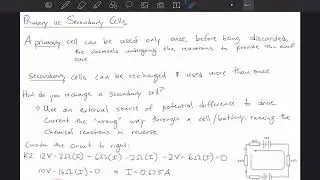 Primary vs Secondary Cells
A primary cell can be used only once before being discarded,
the chemicals undergoing the reactions to provide the emf
once
secondary cells can be recharged & used more than once
How do you recharge a secondary cell?
> Use an external source of potential difference to drive
current the "wrong" way through a cell/battery, running
the chemical reactions in reverse
Consider the circuit to right:
K2: 12V - 2Ω(I) - 6Ω(I) - 2Ω(I) - 2V - 6Ω(I) = 0
10V - 16Ω(I) = 0 ⇒ I = 0.625A